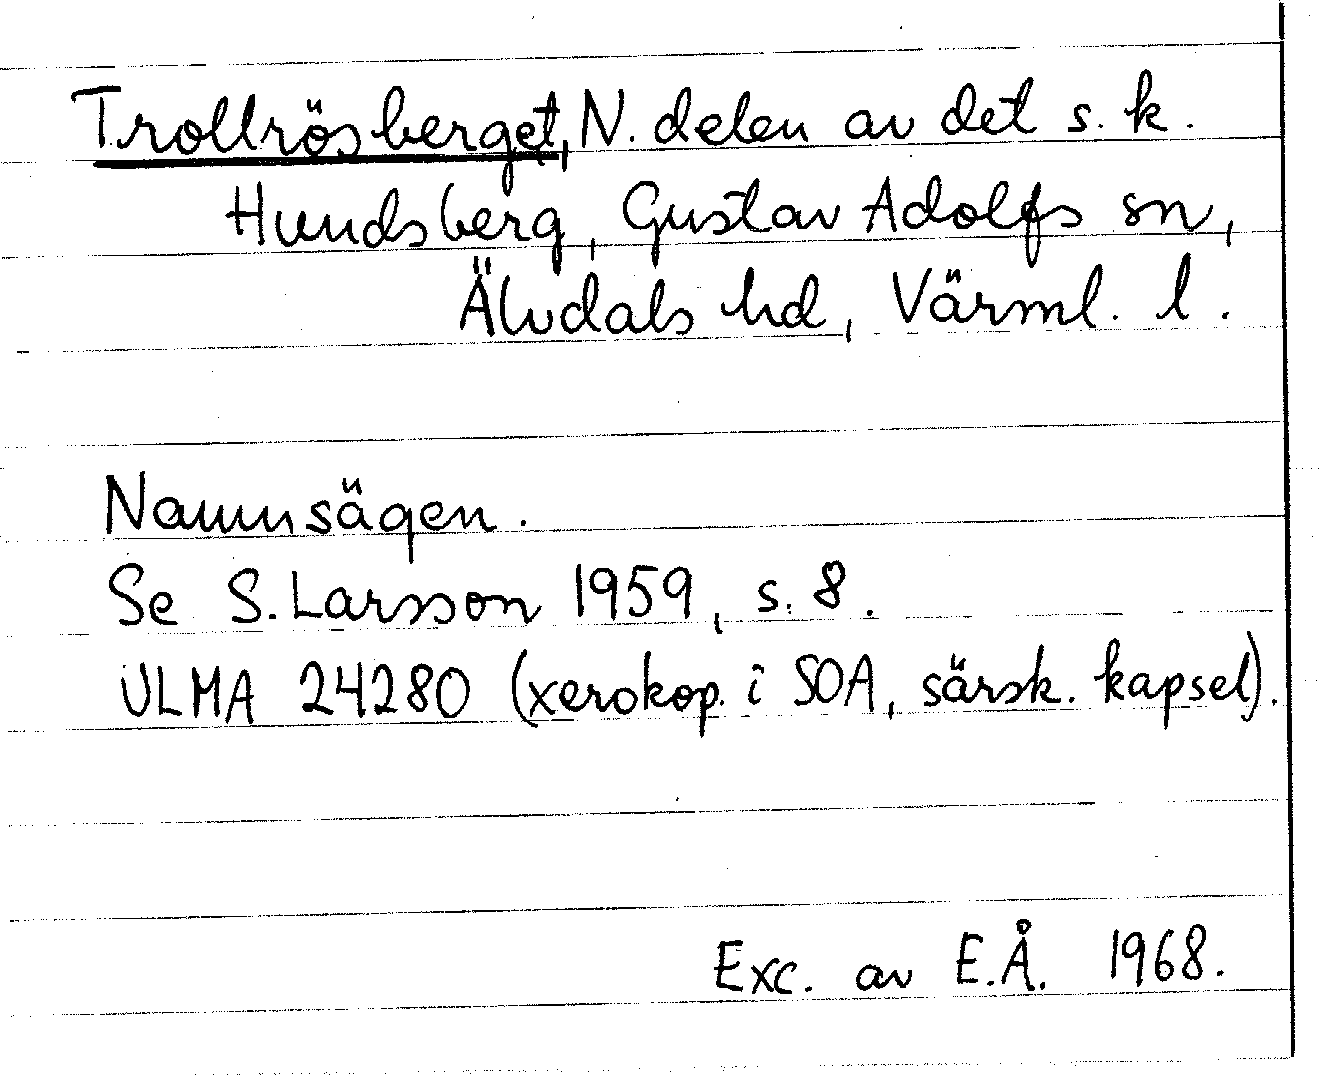 Trollrösberget, N. delen av det s.k.
Hundsberg, Gustav Adolfs sn,
Älvdals hd, Värml. l.
Namnsägen.
Se S. Larsson 1959, s. 8.
ULMA 24280 (xerokop. i SOA, särsk. kapsel).
Exc. av E.Å. 1968.